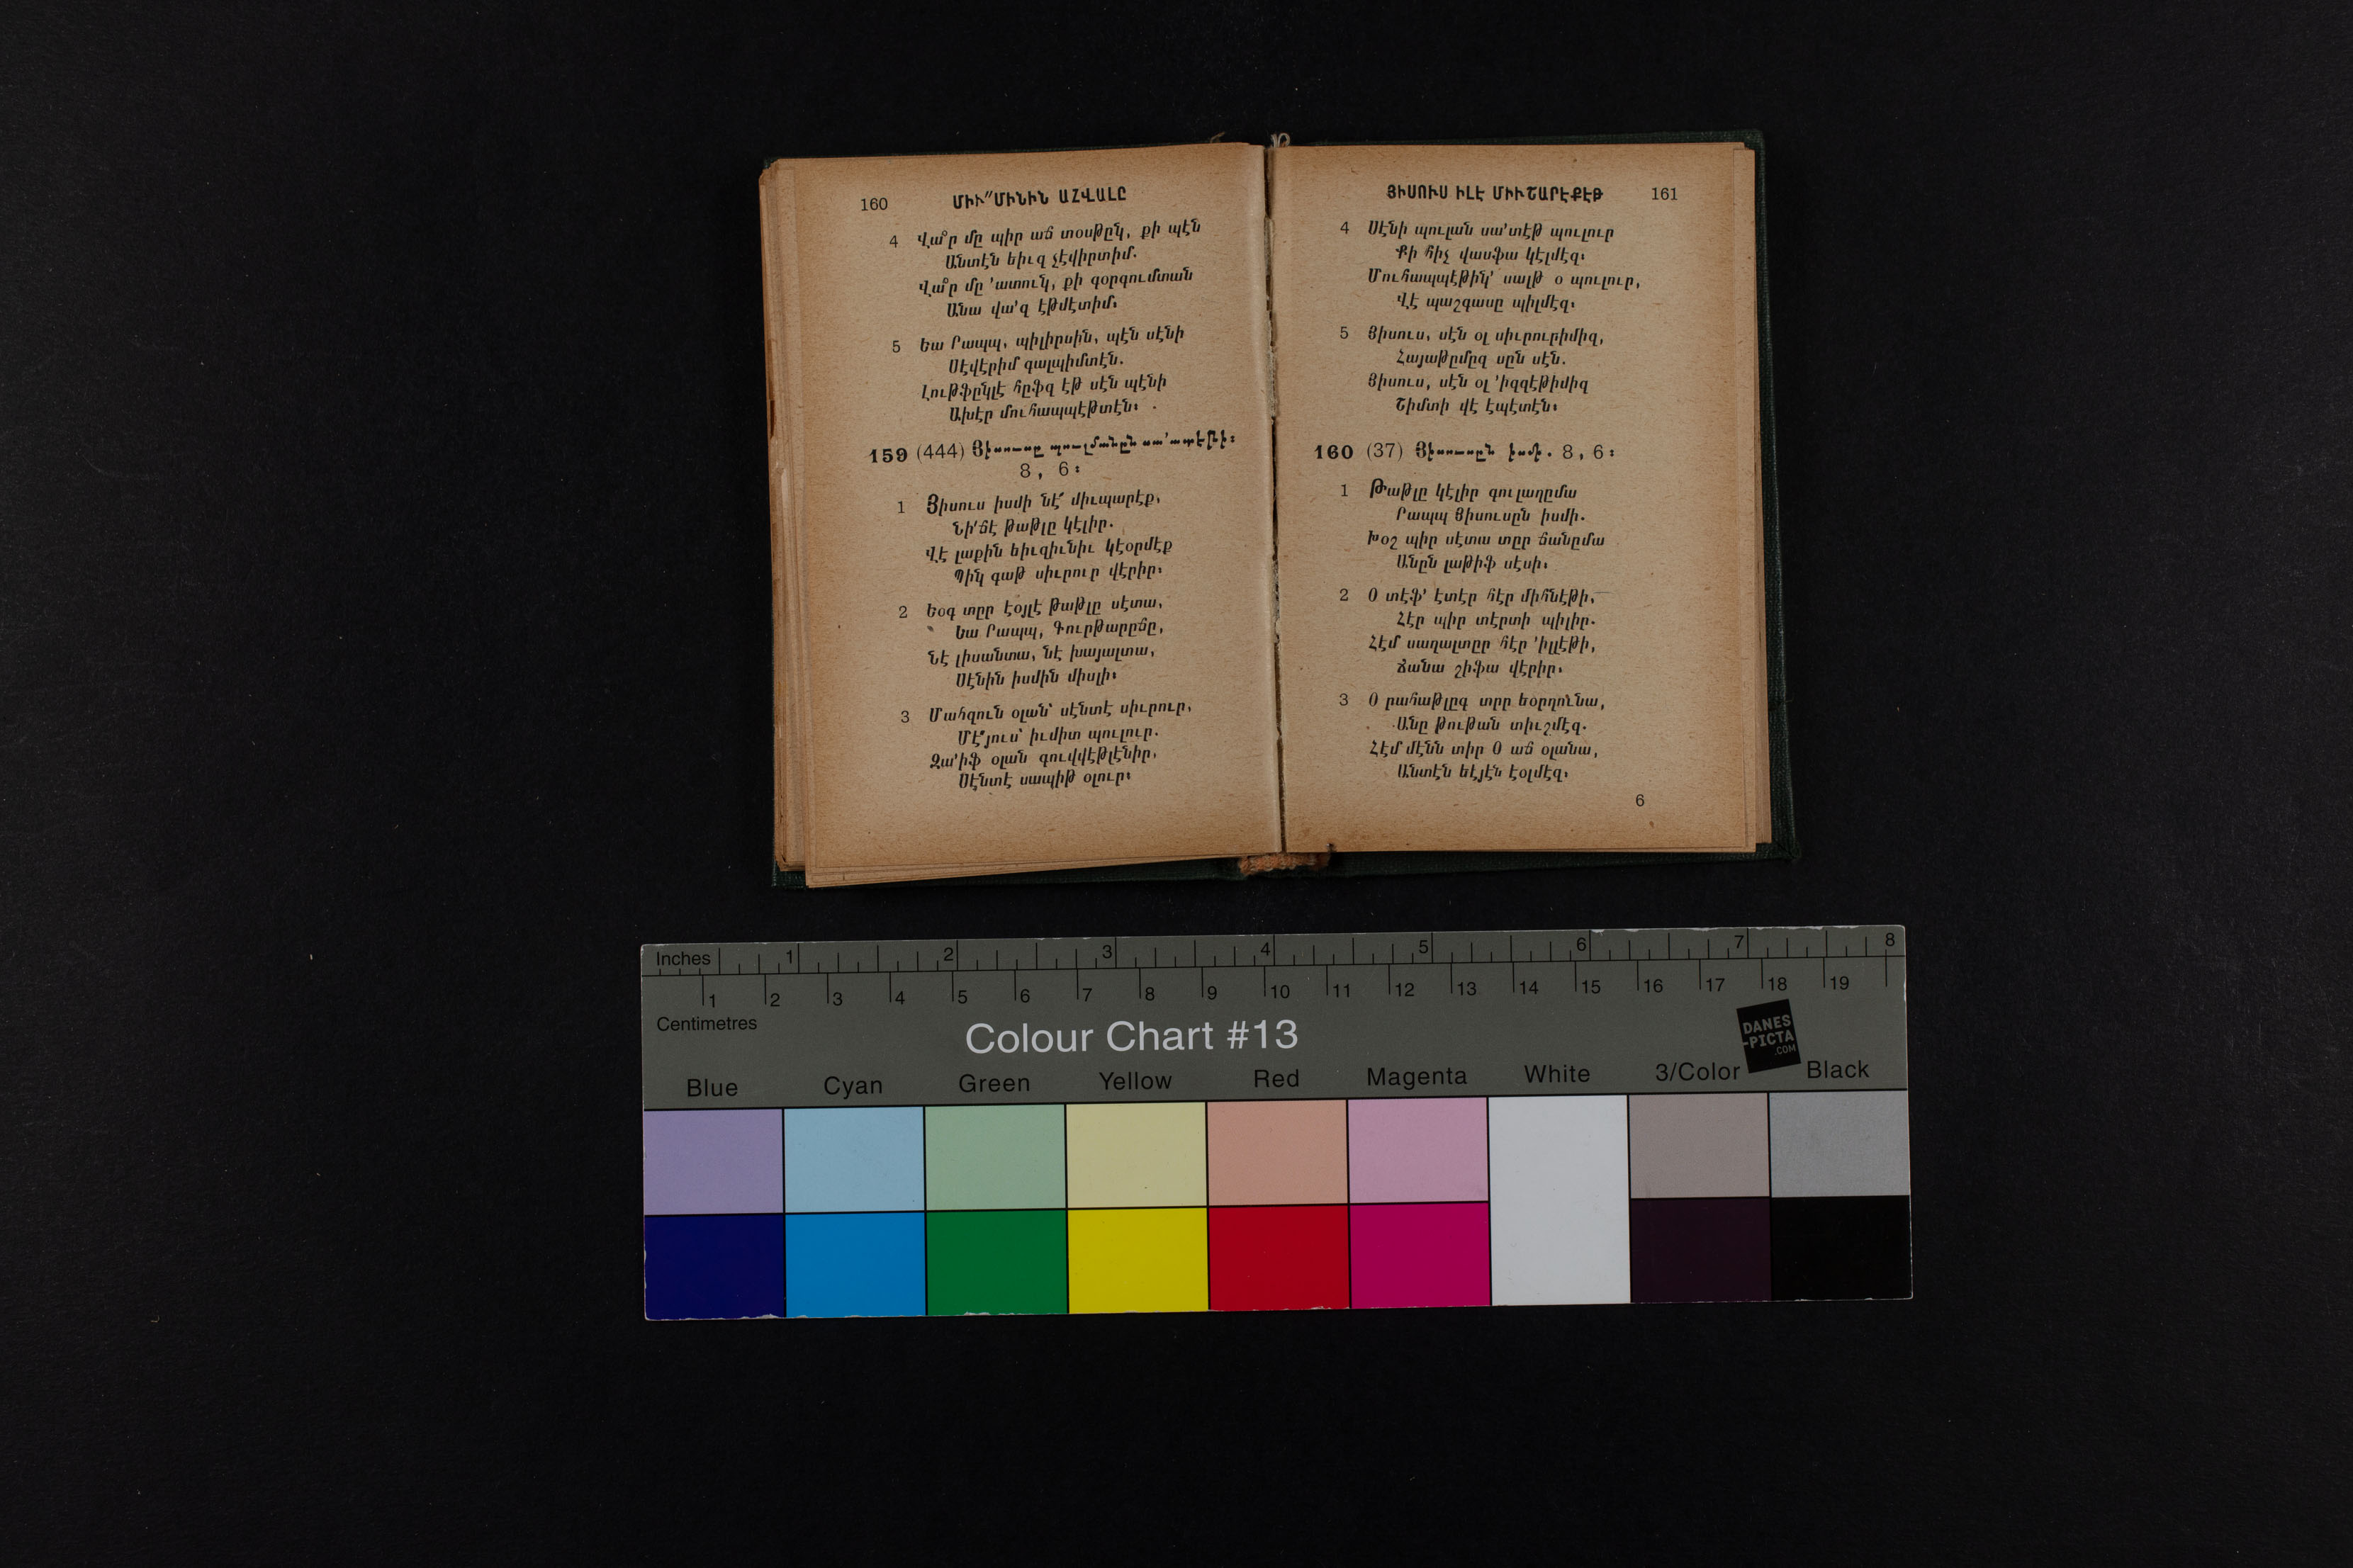 160 ՄԻՒ՚՚ՄԻՆԻՆ ԱՀՎԱԼԸ
4 Վա՞ր մը պիր աճ տօսթըկ, քի պէն
Անտէն եիւզ չէվիրտիմ.
Վա՞ր մը ՚ատուկ, քի գօրգումտան
Անա վա՚զ էթմէտիմ։
5 Եա Րապպ, պիլիրսին, պէն սէնի
Սէվէրիմ գալպիմտէն.
Լութֆընկլէ հըֆզ էթ սէն պէնի
Ախէր մուհապպէթտէն։
159 (444) Յիսուսը պուլմանըն սա՚ատէթի։
8, 6։
1 Յիսուս իսմի նէ՜ միւպարէք,
Նի՛ճէ թաթլը կէլիր.
Վէ լաքին եիւզիւնիւ կէօրմէք
Պինկ գաթ սիւրուր վէրիր։
2 Եօգ տըր էօյլէ թաթլը սէտա,
Եա Րապպ, Գուրթարըճը,
Նէ լիսանտա, նէ խայալտա,
Սէնին իսմին միսլի։
3 Մահզուն օլան՝ սէնտէ սիւրուր,
Մէ՚՚յուս՝ իւմիտ պուլուր.
Զա՚իֆ օլան գուվվէթլէնիր,
Սէնտէ սապիթ օլուր։
ՅԻՍՈՒՍ ԻԼԷ ՄԻՒՇԱՐԷՔԷԹ 161
4 Սէնի պուլան սա՚տէթ պուլուր
Քի հիչ վասֆա կէլմէզ։
Մուհապպէթինկ՚ սալթ օ պուլուր,
Վէ պաշգասը պիլմէզ։
5 Յիսուս, սէն օլ սիւրուրիմիզ,
Հայաթըմըզ սըն սէն.
Յիսուս, սէն օլ ՚իզզէթիմիզ
Շիմտի վէ էպէտէն։
160 (37) Յիսուսըն իսմի. 8, 6։
1 Թաթլը կէլիր գուլաղըմա
Րապպ Յիսուսըն իսմի.
Խօշ պիր սէտա տըր ճանըմա
Անըն լաթիֆ սէսի։
2 Օ տէֆ՚ էտէր հէր միհնէթի,
Հէր պիր տէրտի պիլիր.
Հէմ սաղալտըր հէր ՚իլլէթի,
Ճանա շիֆա վէրիր։
3 Օ րահաթլըգ տըր եօրղունա,
Անը թութան տիւշմէզ.
Հէմ մէնն տիր Օ աճ օլանա,
Անտէն եէյէն էօլմէզ։
6
Inches 1 2 3 4 5 6 7 8
1 2 3 4 5 6 7 8 9 10 11 12 13 14 15 16 17 18 19
Centimetres
Colour Chart #13
DANES
-PICTA
.COM
Blue Cyan Green Yellow Red Magenta White 3/Color Black